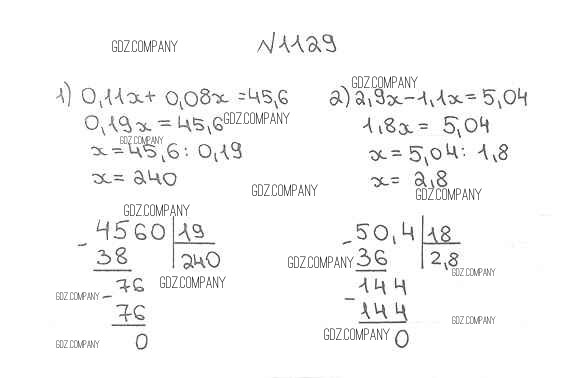 GDZ.COMPANY
N1129
1) 0,11x + 0,08x = 45,6
0,19x = 45,6
GDZ.COMPANY
GDZ.COMPANY
x = 45,6 : 0,19
x = 240
GDZ.COMPANY
2) 2,9x - 1,1x = 5,04
1,8x = 5,04
x = 5,04 : 1,8
x = 2,8
GDZ.COMPANY
GDZ.COMPANY
GDZ.COMPANY
4560 | 19
- 38 | 240
GDZ.COMPANY
76
GDZ.COMPANY
- 76
GDZ.COMPANY
0
50,4 | 18
- 36 | 2,8
GDZ.COMPANY
GDZ.COMPANY
144
- 144
GDZ.COMPANY
GDZ.COMPANY
0